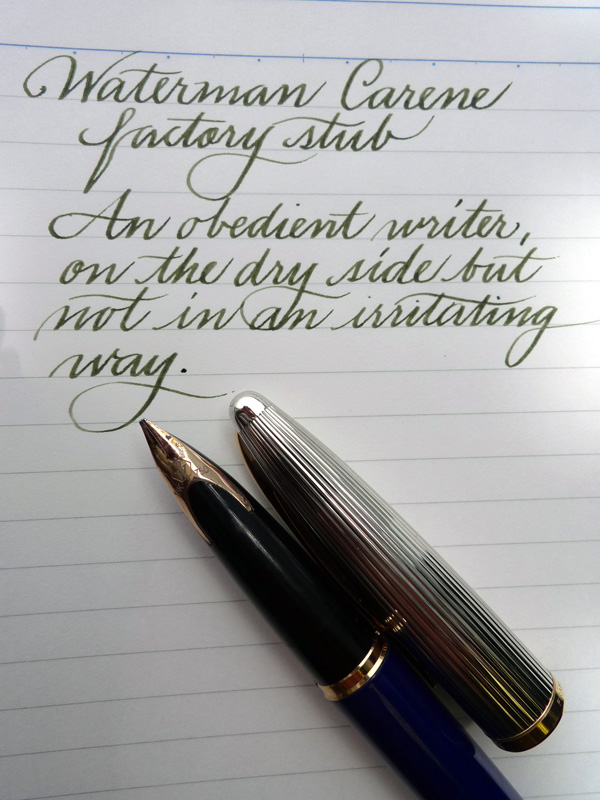 Waterman Carene
factory stub
An obedient writer,
on the dry side but
not in an irritating
way.